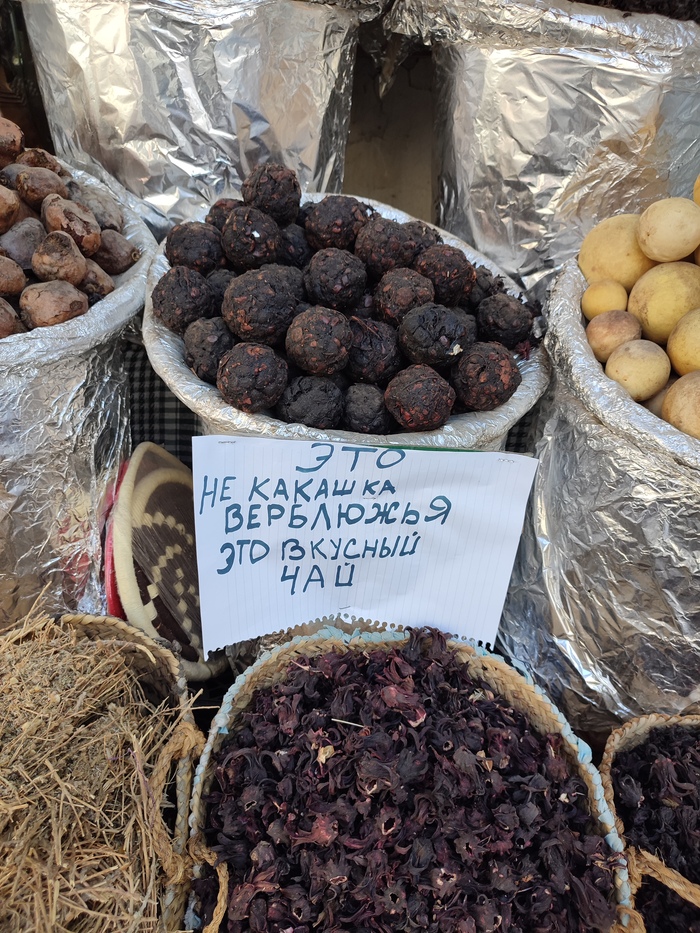 ЭТО
НЕ КАКАШКА
ВЕРБЛЮЖЬЯ
ЭТО ВКУСНЫЙ
ЧАЙ